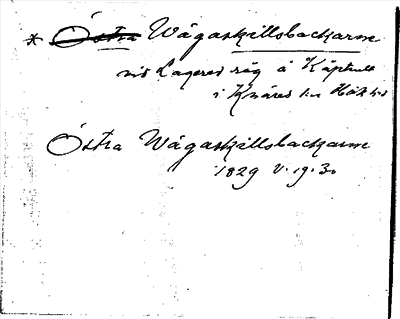 * Östra Wägaskillsbackarne
vid Lagered säg å Käphult
i Knäred sn Hök hd
Östra Wägaskillsbackarne
1829 V. 19. 30